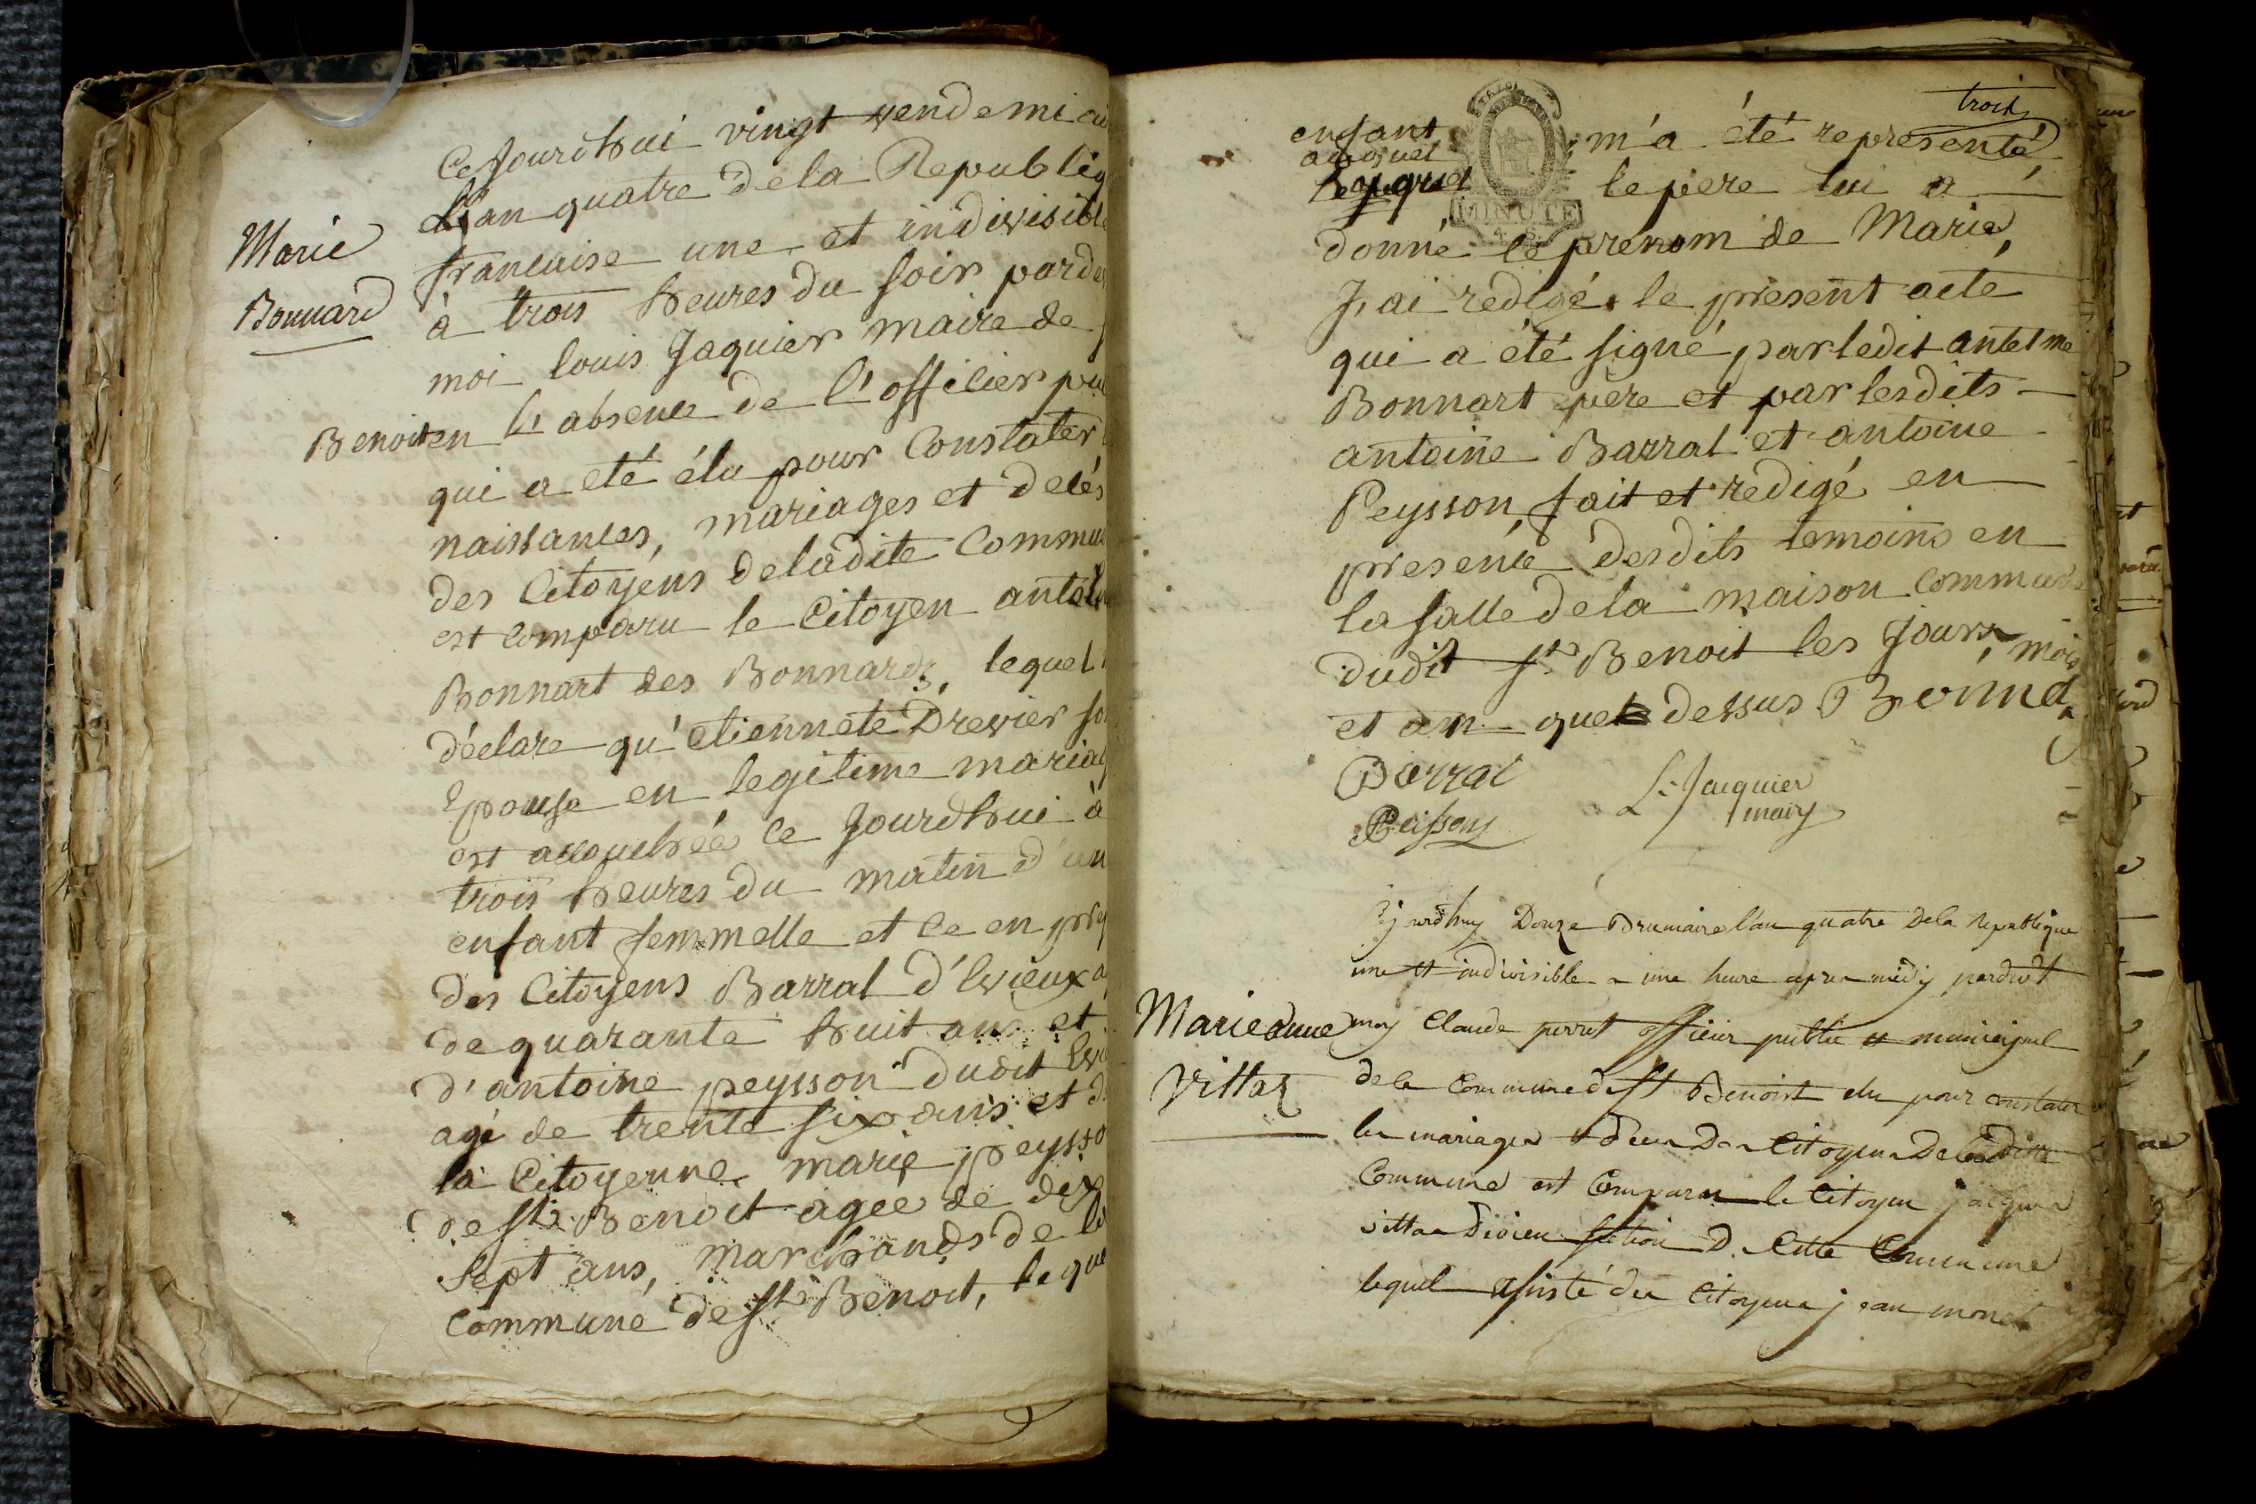 Marie
Bonnard
Cejourdhui vingt vendemi
L'an quatre de la Republiq
francaise une et indivisible
à trois heures du soir parde
moi louis Jaquier maire de
Benoit en l'absence de l'officier pu
qui a eté élu pour Constater
naissances, mariages et décés
des Citoyens deladite Commu
est comparu le Citoyen antel
Bonnart des Bonnards, lequel
déclare qu'etiennete Drevier so
Epouse en legitime mariag
est accouchée ce Jourdhui à
trois heures du matin d'un
enfant femmelle et ce en pre
des Citoyens Barral d'Evieux a
de quarante huit ans et
d'antoine peysson dudit Evi
agé de trente six ans et d
la Citoyenne marie peysso
de st Benoit agée de dix
sept ans, marchands de la
commune de st Benoit, leque
trois
enfant m'a été representé
auquel
lequel le pere lui a
MINUTE
donné le prenom de Marie,
J'ai redigé le present acte
qui a été signé par ledit antelme
Bonnart père et par lesdits
antoine Barral et antoine
Peysson, fait et redigé en
presence desdits temoins en
la salle de la maison commune
dudit st Benoit les Jours, mois
et an que dessus Bonna
Barral
Peisson
L: Jaquier
maire
jourdhuy Douze Brumaire l'an quatre Dela Republique
une et indivisible a une heure apres midy pardevt
Marie anne
Vittoz
moy Claude perret officier public et municipal
de la Commune de st Benoist elu pour constater
les mariages Des Citoyens De ladite
Commune est Comparu le Citoyen jacques
D Cette Commune
lequel assisté des Citoyens jean monet